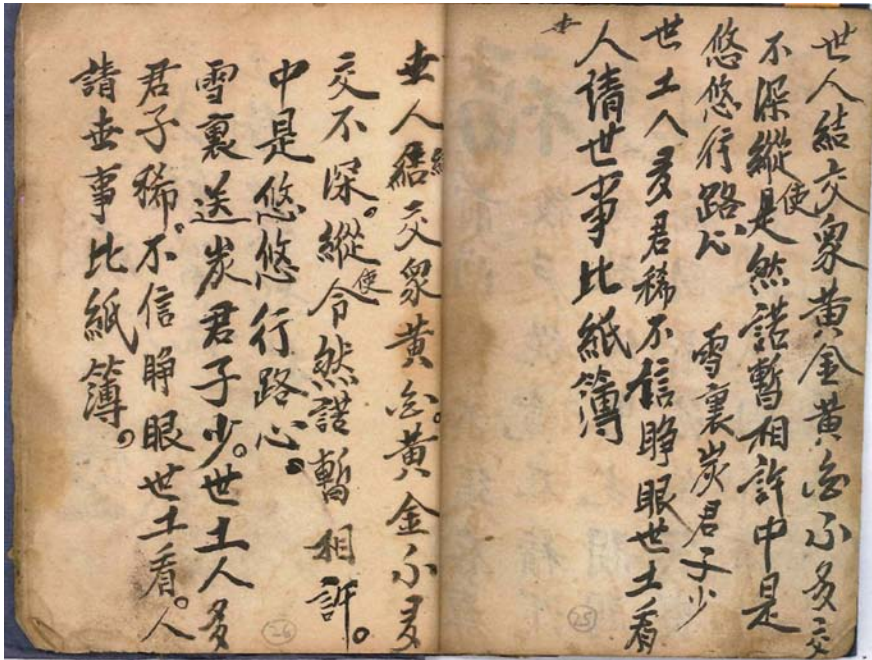 世人結交衆黃金黃金不多交
不深縱是使然諾暫相許中是
悠悠行路心 雪裏炭君子少
世土人多君稀不信睜眼世土看
人請世事比紙簿
世
25
世人結交衆黃金。黃金不多
交不深。縱令使然諾暫相許。
中是悠悠行路心。
雪裏送炭君子少。世土人多
君子稀。不信睜眼世土看。人
請世事比紙簿。
26